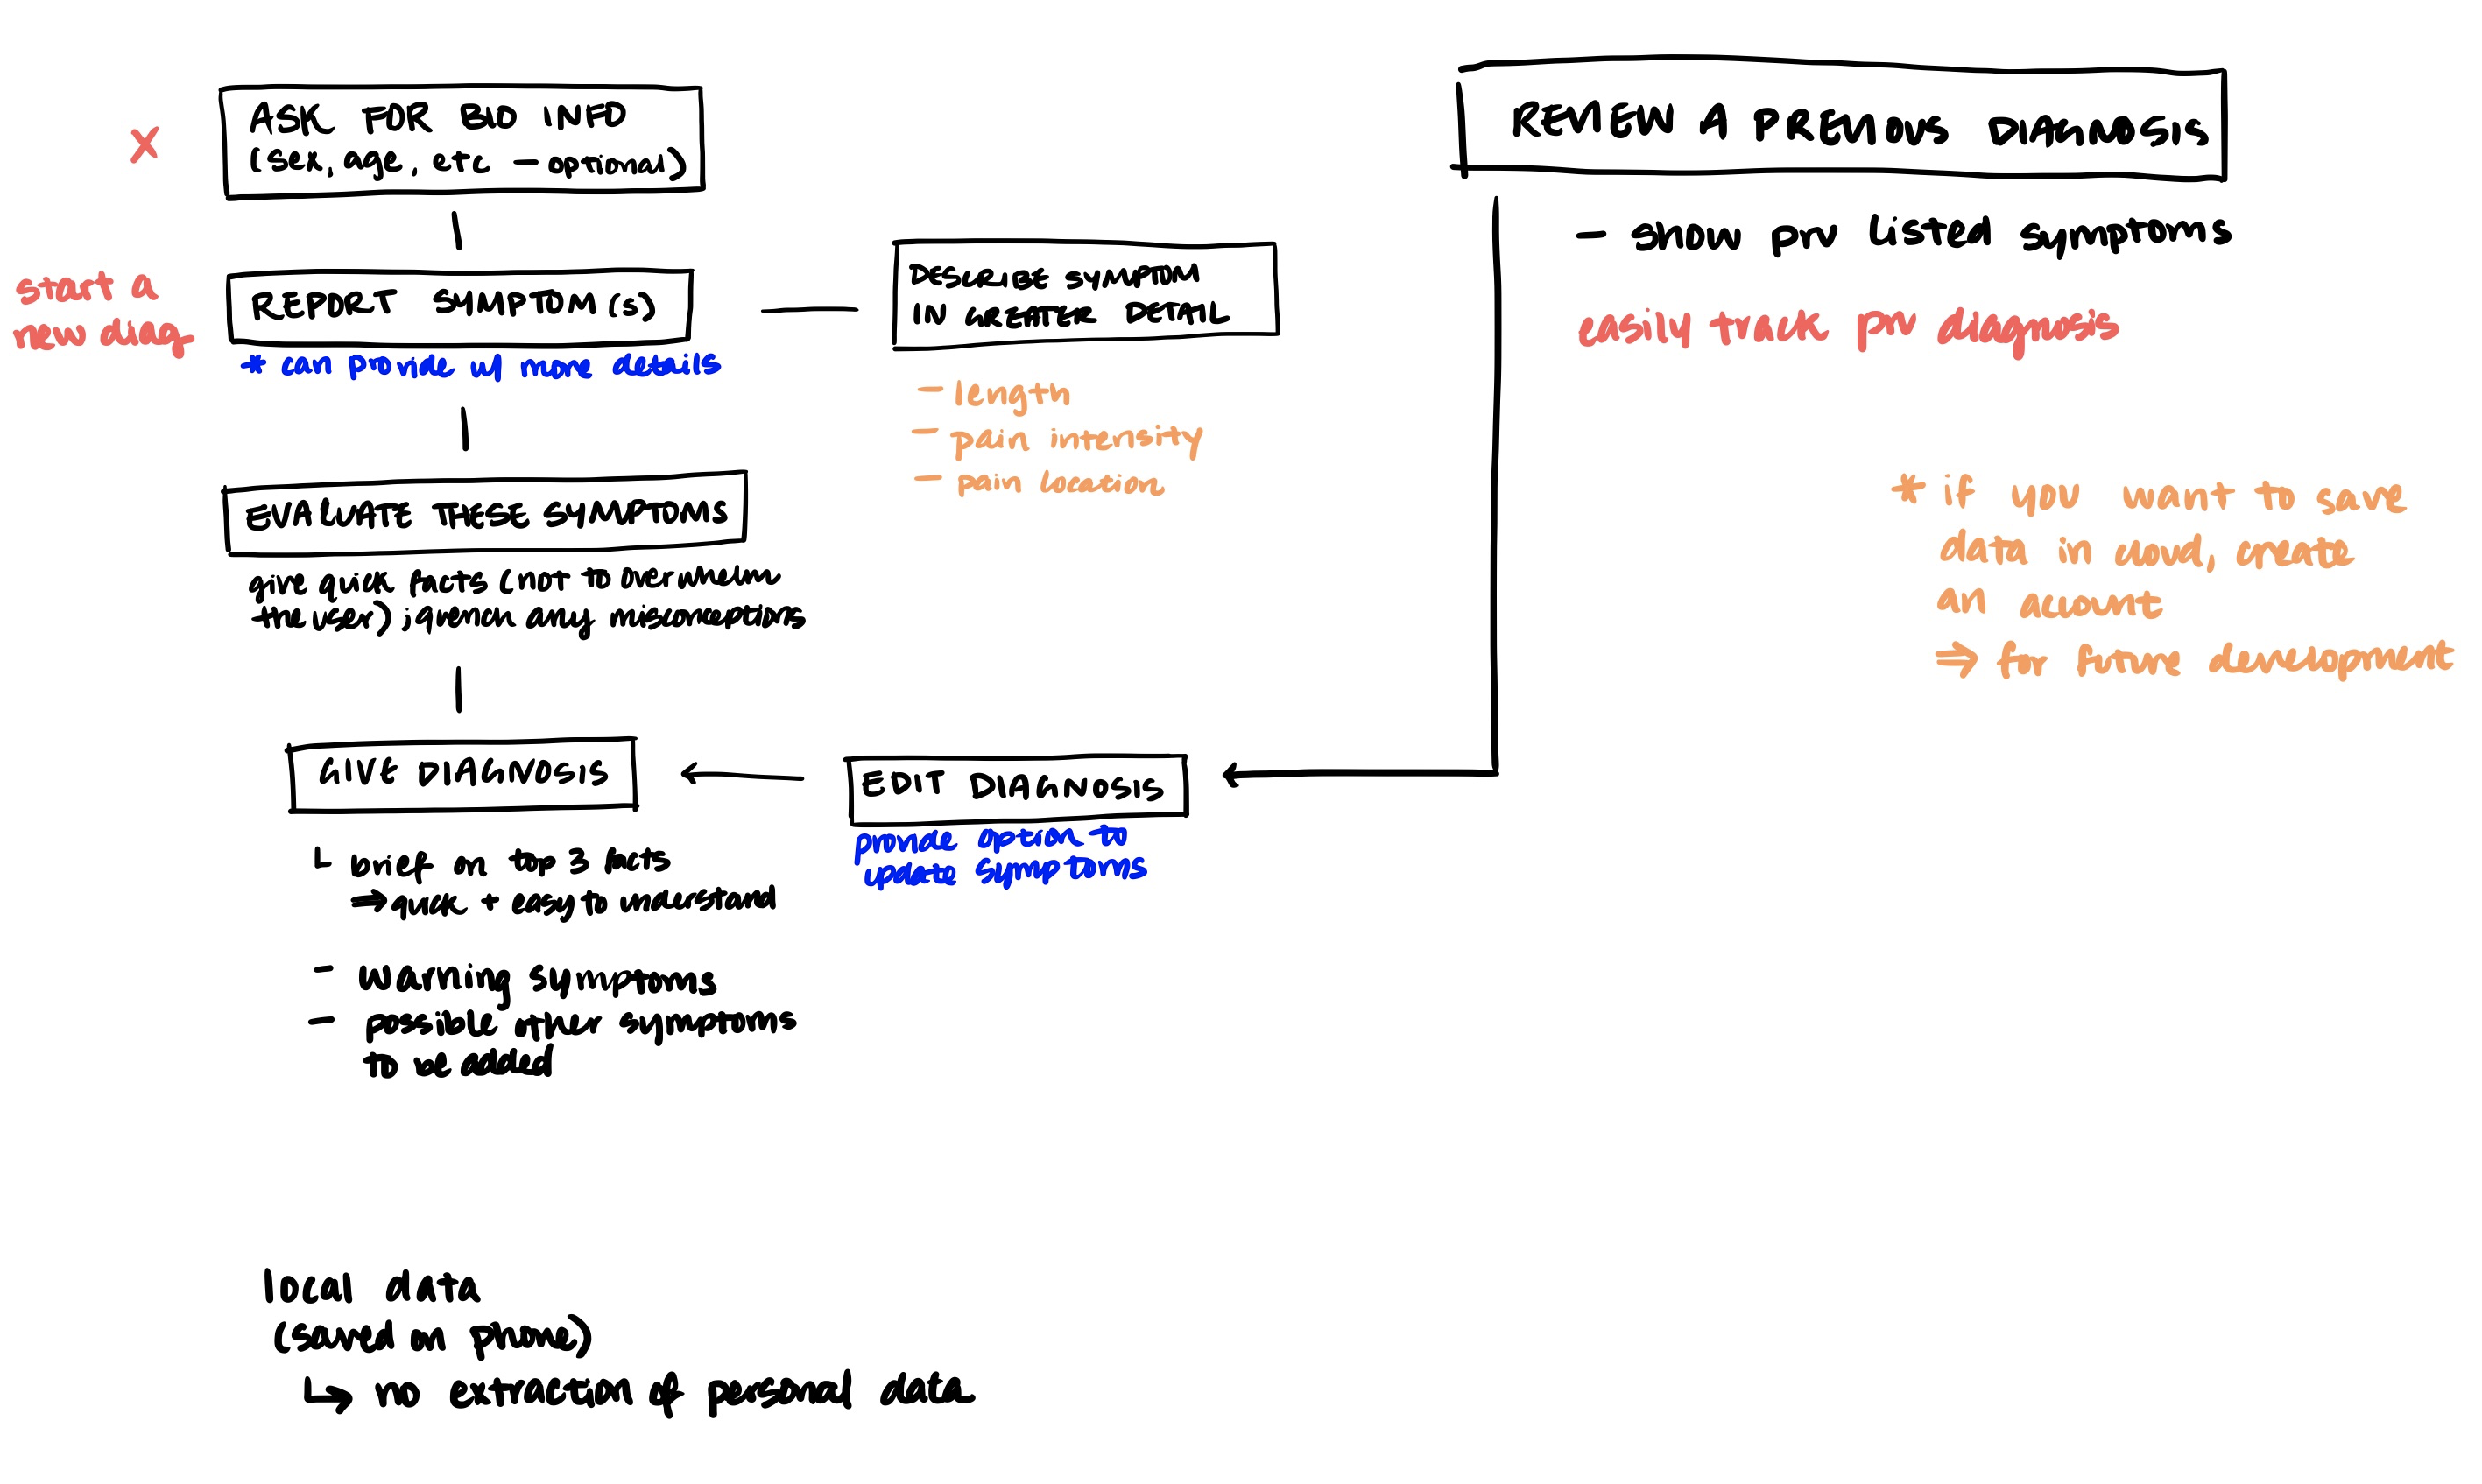 X
ASK FOR BIO INFO
(sex, age, etc — optional)
start a
new diag
REPORT SYMPTOM(s)
* can provide w/ more details
DESCRIBE SYMPTOM
IN GREATER DETAIL
- length
- pain intensity
- pain location
EVALUATE THESE SYMPTOMS
give quick facts (not to overwhelm
the user); quench any misconceptions
GIVE DIAGNOSIS
└ brief on top 3 facts
⇒ quick + easy to understand
- warning symptoms
- possible other symptoms
to be added
EDIT DIAGNOSIS
provide option to
update symptoms
REVIEW A PREVIOUS DIAGNOSIS
- show prv listed symptoms
easily track prv diagnosis
* if you want to save
data in cloud, create
an account
⇒ for future development
local data
(saved on phone)
↳ no extraction of personal data